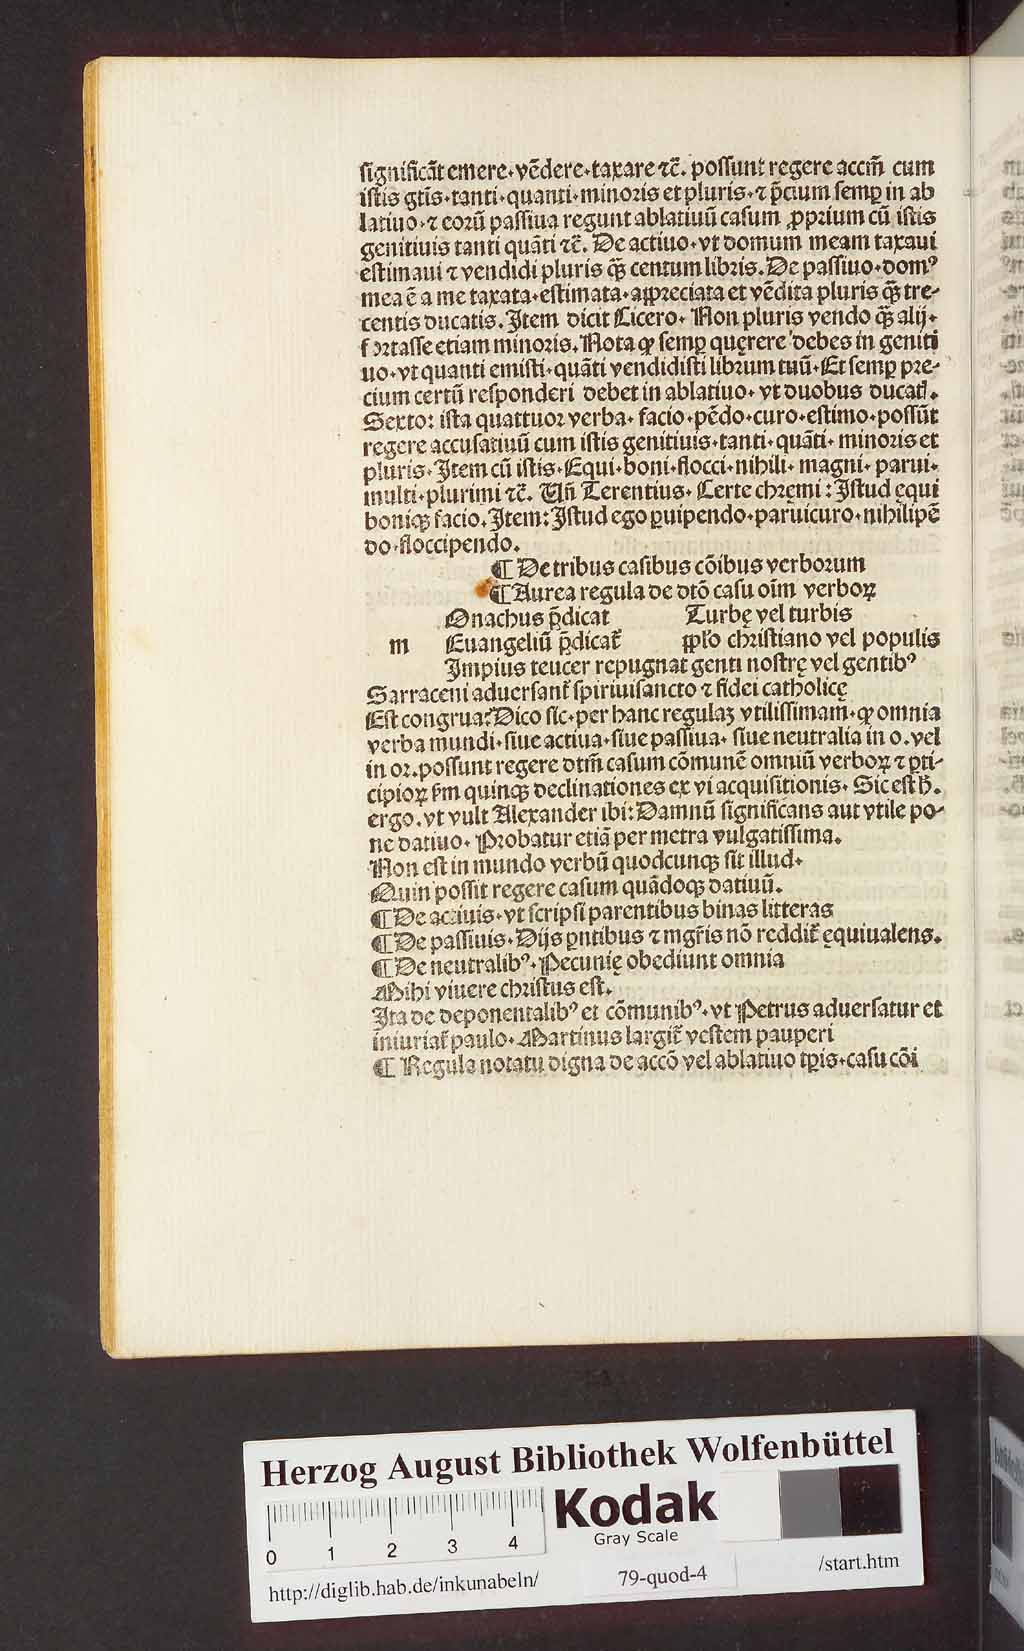 significāt emere. vēdere. taxare ⁊c̄. possunt regere accm̄ cum
istis gtīs. tanti. quanti. minoris et pluris. ⁊ p̄cium semꝑ in ab
latiuo. ⁊ eorū passiua regunt ablatiuū casum ꝓprium cū istis
genitiuis tanti quāti ⁊c̄. De actiuo. vt domum meam taxaui
estimaui ⁊ vendidi pluris qꝫ̄ centum libris. De passiuo. domꝰ
mea ē a me taxata. estimata. appreciata et vēdita pluris qꝫ̄ tre-
centis ducatis. Item dicit Cicero. Non pluris vendo qꝫ̄ alij.
fortasse etiam minoris. Nota ꝙ semꝑ quęrere debes in geniti
uo. vt quanti emisti. quāti vendidisti librum tuū. Et semꝑ pre-
cium certū responderi debet in ablatiuo. vt duobus ducatꝭ.
Sexto: ista quattuor verba. facio. pēdo. curo. estimo. possūt
regere accusatiuū cum istis genitiuis. tanti. quāti. minoris et
pluris. Item cū istis. Equi. boni. flocci. nihili. magni. parui.
multi. plurimi ⁊c̄. Vn̄ Terentius. Certe chręmi: Istud ęqui
boniqꝫ facio. Item: Istud ego ꝑuipendo. paruicuro. nihilipē
do. floccipendo.
¶ De tribus casibus cōibus verborum
¶ Aurea regula de dtō casu oīm verboꝝ
m
Onachus p̄dicat Turbę vel turbis
Euangeliū p̄dicat᷑ ppl̓o christiano vel populis
Impius teucer repugnat genti nostrę vel gentibꝰ
Sarraceni aduersant᷑ spirituisancto ⁊ fidei catholicę
Est congrua? Dico sic. per hanc regulaꝫ vtilissimam. ꝙ omnia
verba mundi. siue actiua. siue passiua. siue neutralia in o. vel
in or. possunt regere dtm̄ casum cōmunē omniū verboꝝ ⁊ ꝑti-
cipioꝝ ẜm quinqꝫ declinationes ex vi acquisitionis. Sic est h̄.
ergo. vt vult Alexander ibi: Damnū significans aut vtile po-
ne datiuo. Probatur etiā per metra vulgatissima.
Non est in mundo verbū quodcunqꝫ sit illud.
Quin possit regere casum quādoqꝫ datiuū.
¶ De actiuis. vt scripsi parentibus binas litteras
¶ De passiuis. Dijs ꝑntibus ⁊ mgr̄is nō reddit᷑ ęquiualens.
¶ De neutralibꝰ. Pecunię obediunt omnia
Mihi viuere christus est.
Ita de deponentalibꝰ et cōmunibꝰ. vt Petrus aduersatur et
iniuriat᷑ paulo. Martinus largit᷑ vestem pauperi
¶ Regula notatu digna de accō vel ablatiuo tꝑis. casu cōi
Herzog August Bibliothek Wolfenbüttel
Kodak
Gray Scale
0 1 2 3 4
http://diglib.hab.de/inkunabeln/ 79-quod-4 /start.htm